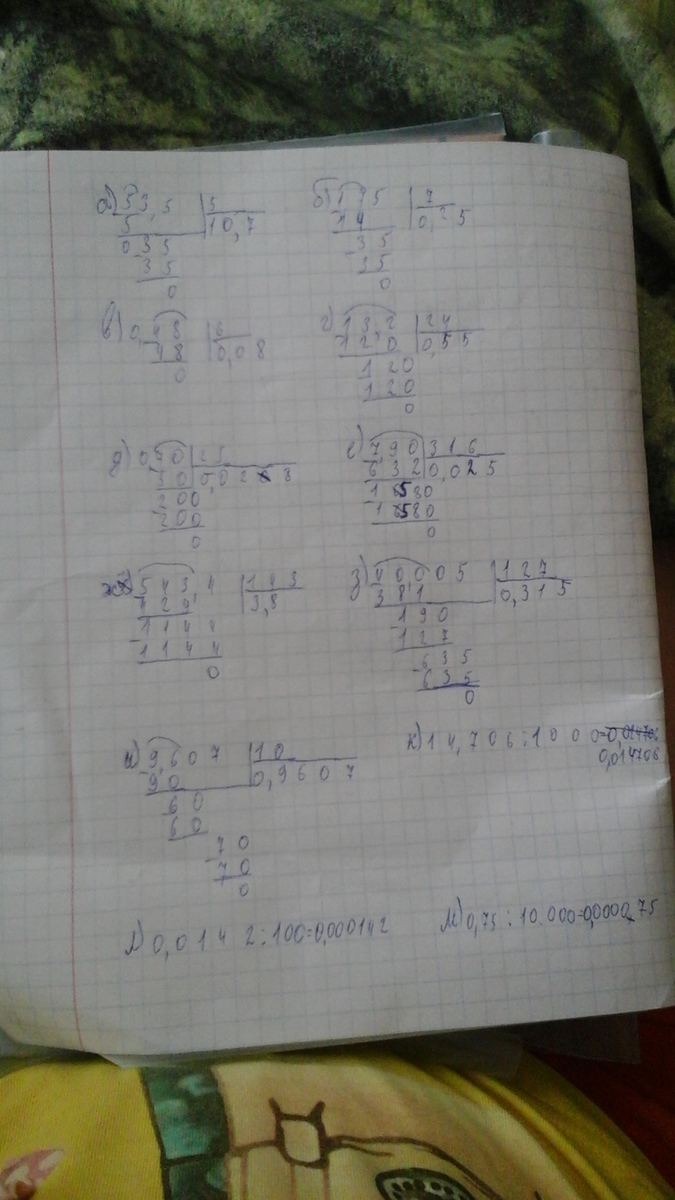 а) 53,5 | 5
5 | 10,7
035
35
0
б) 1,75 | 7
14 | 0,25
35
35
0
в) 0,48 | 6
48 | 0,08
0
г) 13,2 | 24
120 | 0,55
120
120
0
д) 0,70 | 25
50 | 0,028
200
200
0
е) 7,90 | 316
632 | 0,025
1580
1580
0
ж) 543,4 | 143
429 | 3,8
1144
1144
0
з) 40,005 | 127
381 | 0,315
190
127
635
635
0
и) 9,607 | 10
90 | 0,9607
60
60
70
70
0
к) 14,706:1000=
0,014706
л) 0,0142:100=0,000142
м) 0,75:10.000=0,000075